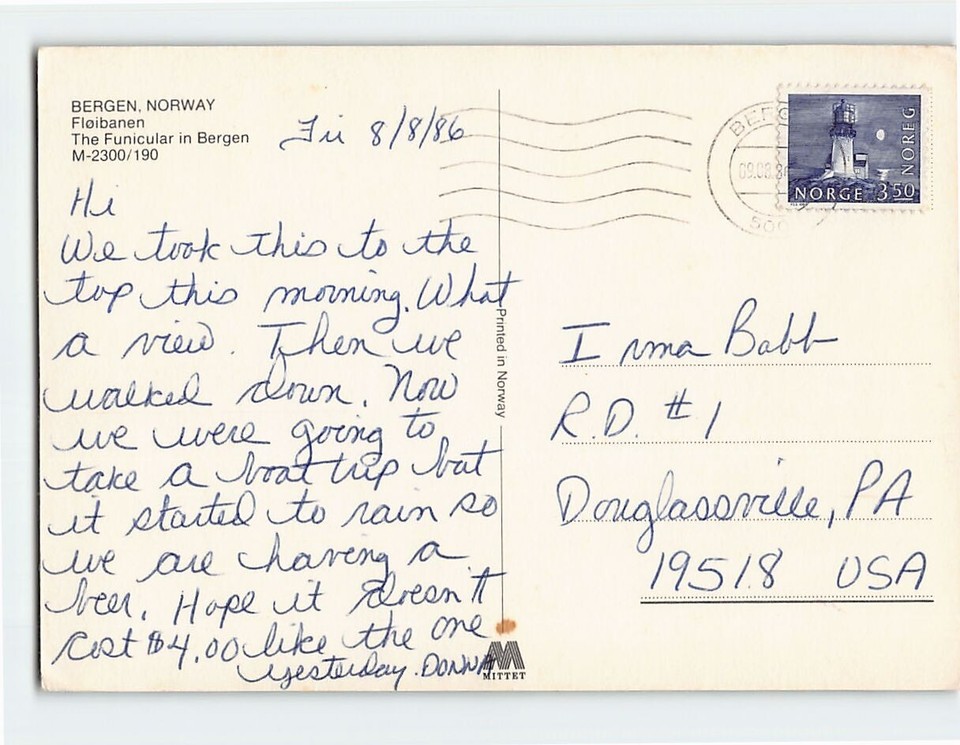 BERGEN, NORWAY
Fløibanen
The Funicular in Bergen
M-2300/190
Fri 8/8/86
Hi
We took this to the
top this morning. What
a view. Then we
walked down. Now
we were going to
take a boat trip but
it started to rain so
we are having a
beer. Hope it doesn't
cost $4.00 like the one
yesterday. DONNA
Printed in Norway
MITTET
BERG
09.08.8
500
NOREG
NORGE 350
Irma Babb
R.D. #1
Douglassville, PA
19518 USA